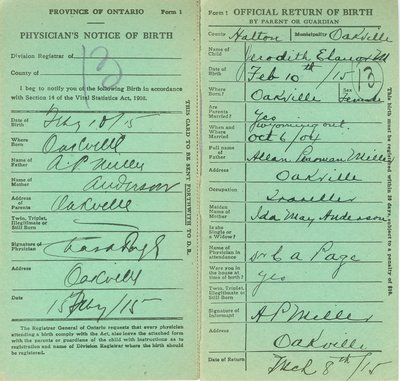 PROVINCE OF ONTARIO Form 1
PHYSICIAN'S NOTICE OF BIRTH
Division Registrar of
13
County of
I beg to notify you of the following Birth in accordance
with Section 14 of the Vital Statistics Act, 1908.
Date of Birth 10/15
Where Born Oakville
Name of Father A P Miller
Name of Mother Anderson
Address of Parents Oakville
Twin, Triplet, Illegitimate or Still Born
Signature of Physician
Address Oakville
Date 15 /15
The Registrar General of Ontario requests that every physician
attending a birth comply with the Act, also leave the attached form
with the parents or guardians of the child with instructions as to
registration and name of Division Registrar where the birth should
be registered.
THIS CARD TO BE SENT FORTHWITH TO D.R.
Form 1 OFFICIAL RETURN OF BIRTH
BY PARENT OR GUARDIAN
County Halton Municipality Oakville
Name of Child Elanor M
Date of Birth Feb 10th /15 13
Where Born? Oakville Sex Female
Are Parents Married? Yes
When and Where Married Wyoming Ont. Oct 6/04
Full name of Father Allan Miller
Address Oakville
Occupation Traveller
Maiden Name of Mother Ida May Anderson
Is she Single or a Widow?
Name of Physician in attendance Dr C A Page
Were you in the house at time of birth? Yes
Twin, Triplet, Illegitimate or Still Born
Signature of Informant A P Miller
Address Oakville
Date of Return Mch 8th /15
This birth must be registered within 30 days, subject to a penalty of $10.